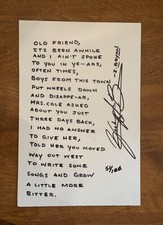 OLD FRIEND,
ITS BEEN AWHILE
AND I AIN'T SPOKE
TO YOU IN YE-ARS,
OFTEN TIMES,
BOYS FROM THIS TOWN
PUT WHEELS DOWN
AND DISAPPE-AR,
MRS. COLE ASKED
ABOUT YOU JUST
THREE DAYS BACK,
I HAD NO ANSWER
TO GIVE HER,
TOLD HER YOU MOVED
WAY OUT WEST
TO WRITE SOME
SONGS AND GROW
A LITTLE MORE
BITTER.